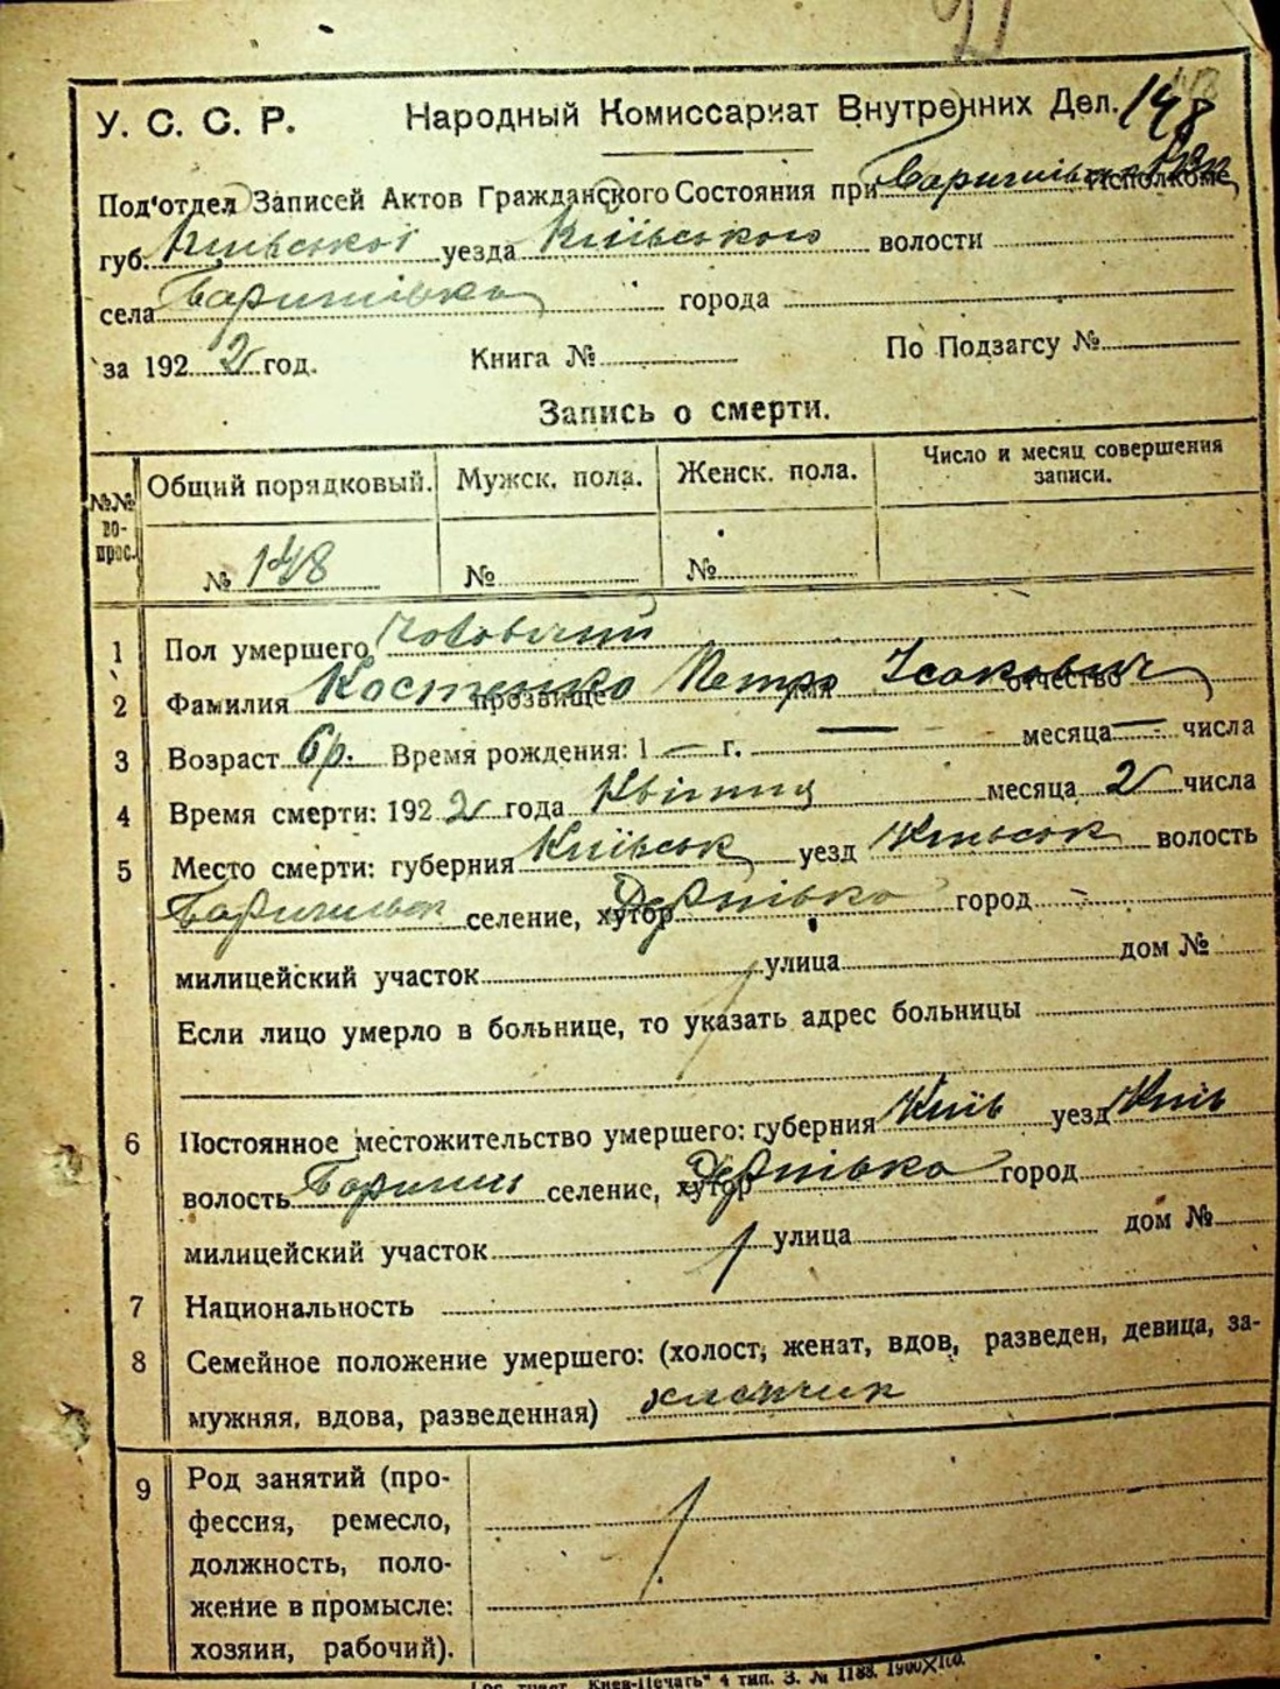 21
У. С. С. Р. Народный Комиссариат Внутренних Дел. 148
Под'отдел Записей Актов Гражданского Состояния при Исполкоме
губ. Київської уезда Київського волости
села Баришівка города
за 192 2 год. Книга № По Подзагсу №
Запись о смерти.
№№ вопрос. Общий порядковый. Мужск. пола. Женск. пола. Число и месяц совершения записи.
№ 148 № №
1 Пол умершего чоловічий
2 Фамилия Костенко прозвище Петро имя Ісакович отчество
3 Возраст 6 р. Время рождения: 1 — г. — месяца — числа
4 Время смерти: 192 2 года Квітня месяца 2 числа
5 Место смерти: губерния Київськ уезд Київськ волость
селение, хутор город
милицейский участок улица дом №
Если лицо умерло в больнице, то указать адрес больницы
6 Постоянное местожительство умершего: губерния Київ уезд Київ
волость Бориш селение, хутор город
милицейский участок улица дом №
7 Национальность
8 Семейное положение умершего: (холост, женат, вдов, разведен, девица, за-
мужняя, вдова, разведенная) хлопчик
9 Род занятий (про-
фессия, ремесло,
должность, поло-
жение в промысле:
хозяин, рабочий).
Гос. трест „Киев-Печать" 4 тип. З. № 1188. 1900